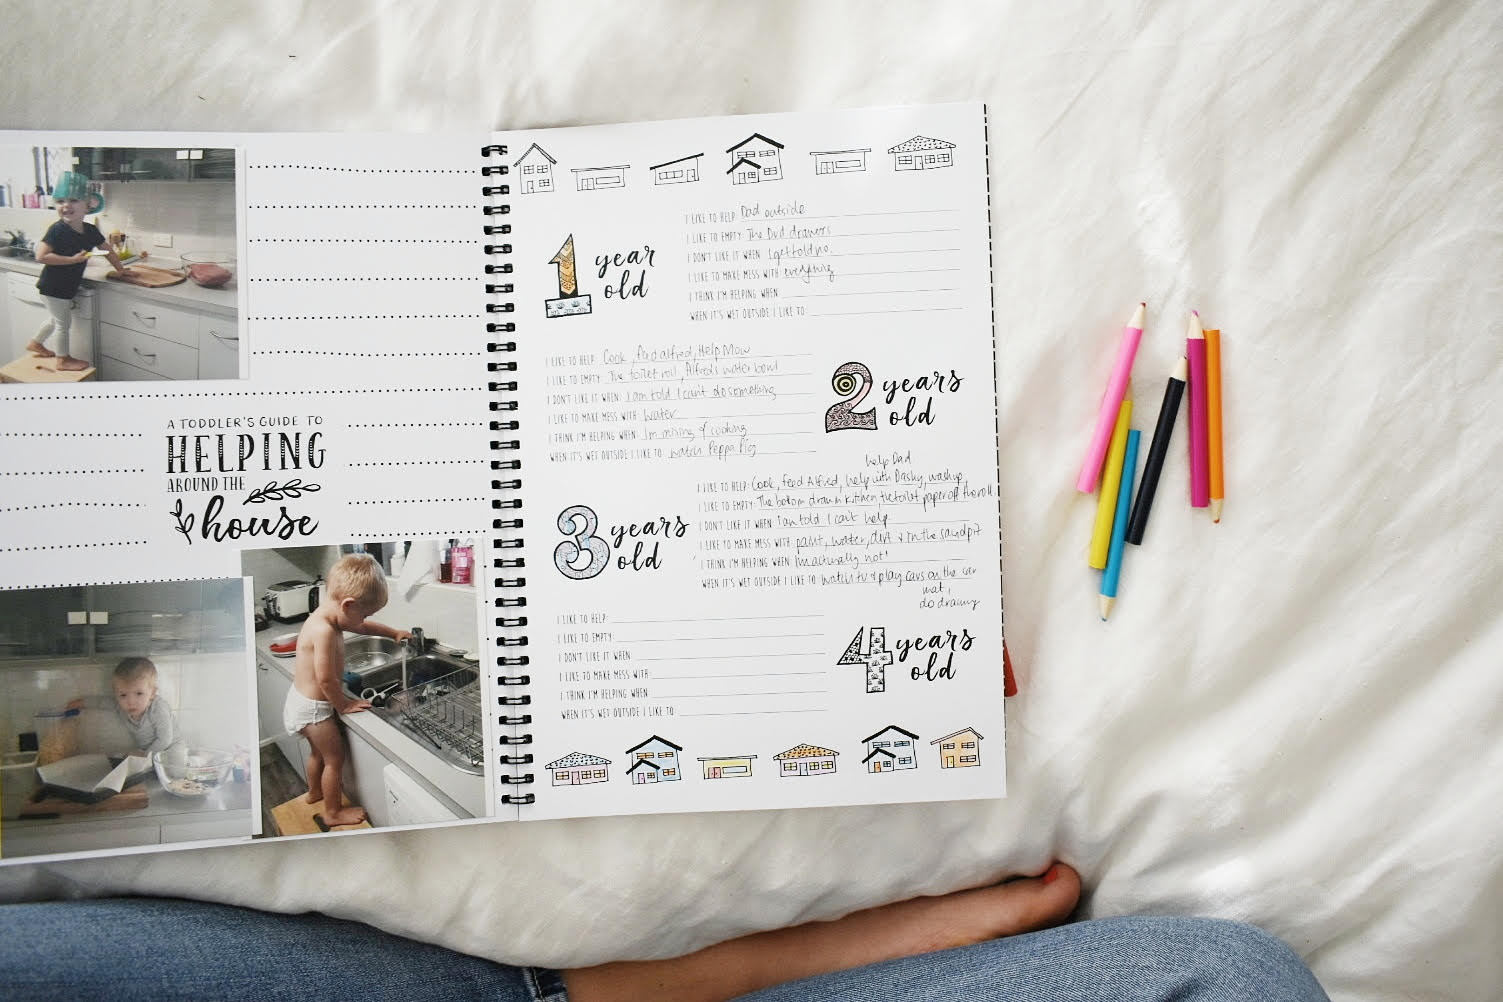 A TODDLER'S GUIDE TO
HELPING
AROUND THE
house
1 year
old
I LIKE TO HELP: Dad outside
I LIKE TO EMPTY: The Dvd drawers
I DON'T LIKE IT WHEN: I get told no.
I LIKE TO MAKE MESS WITH: everything
I THINK I'M HELPING WHEN:
WHEN IT'S WET OUTSIDE I LIKE TO:
I LIKE TO HELP: Cook, feed alfred, Help Mow
I LIKE TO EMPTY: The toilet roll, Alfreds water bowl
I DON'T LIKE IT WHEN: I am told I can't do something
I LIKE TO MAKE MESS WITH: Water
I THINK I'M HELPING WHEN: I'm mixing & cooking
WHEN IT'S WET OUTSIDE I LIKE TO: watch Peppa Pig
2 years
old
3 years
old
help Dad
I LIKE TO HELP: Cook, feed Alfred, help with Dashy, washup,
I LIKE TO EMPTY: The bottom draw in kitchen, the toilet paper off the roll
I DON'T LIKE IT WHEN: I am told I can't help
I LIKE TO MAKE MESS WITH: paint, water, dirt & in the sandpit
I THINK I'M HELPING WHEN: Im actually not!
WHEN IT'S WET OUTSIDE I LIKE TO: Watch tv & play cars on the car
mat,
do drawing
I LIKE TO HELP:
I LIKE TO EMPTY:
I DON'T LIKE IT WHEN:
I LIKE TO MAKE MESS WITH:
I THINK I'M HELPING WHEN:
WHEN IT'S WET OUTSIDE I LIKE TO:
4 years
old